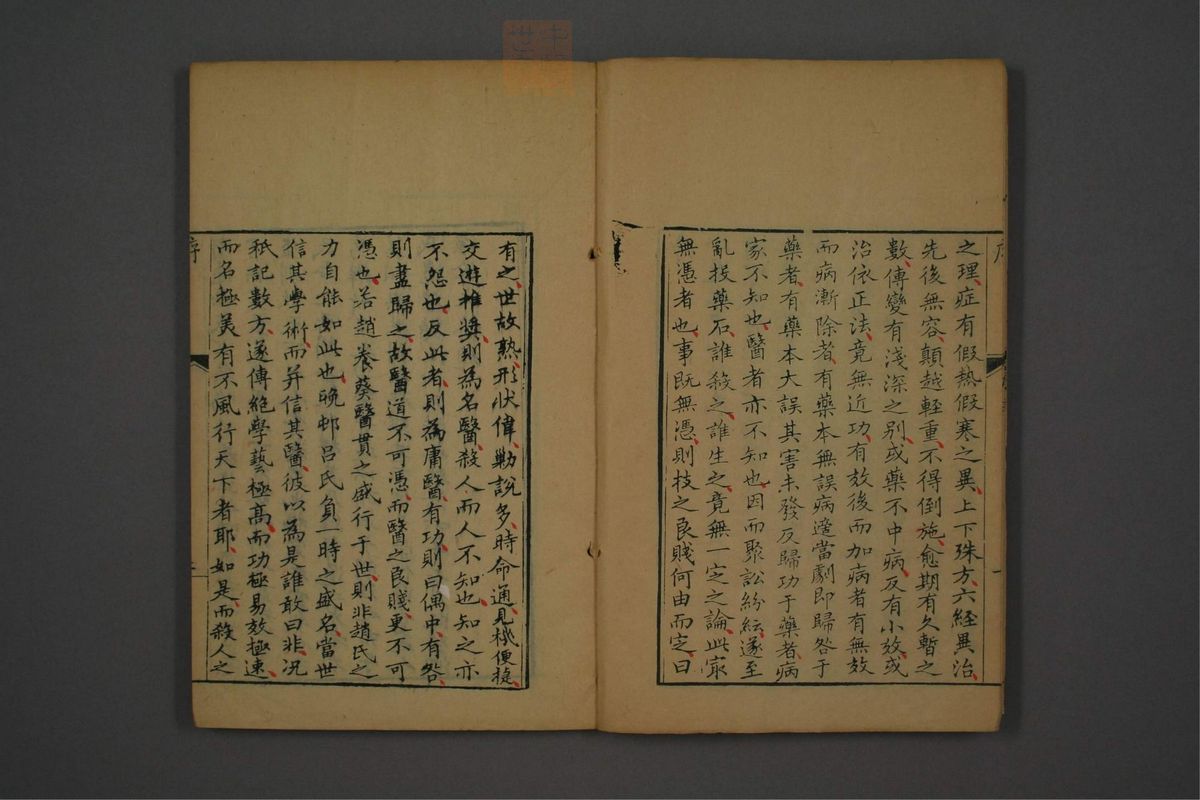 之理症有假熱假寒之異上下殊方六經異治
先後無容顛越輕重不得倒施愈期有久暫之
數傳變有淺深之別或藥不中病反有小效或
治依正法竟無近功有效後而加病者有無效
而病漸除者有藥本無誤病適當劇即歸咎于
藥者有藥本大誤其害未發反歸功于藥者病
家不知也醫者亦不知也因而聚訟紛紜遂至
亂投藥石誰殺之誰生之竟無一定之論此㝡
無憑者也事既無憑則技之良賤何由而定曰
有之世故熟形狀偉勦說多時命通見機便捷
交遊推奬則為名醫殺人而人不知也知之亦
不怨也反此者則為庸醫有功則曰偶中有咎
則盡歸之故醫道不可憑而醫之良賤更不可
憑也若趙養葵醫貫之盛行于世則非趙氏之
力自能如此也晚邨呂氏負一時之盛名當世
信其學術而并信其醫彼以為是誰敢曰非况
秖記數方遂傳絕學藝極高而功極易效極速
而名極美有不風行天下者耶如是而殺人之
序